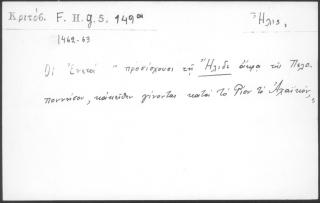 Κριτόβ. F. H. g. 5. 149 Ἦλις,
1462-63
Οἱ Ἑνετοὶ " προσίσχουσι τῇ Ἤλιδι ἄκρᾳ τῆς Πελο
ποννήσου, κἀκεῖθεν γίνονται κατὰ τὸ Ῥίον τὸ Ἀχαϊκόν,